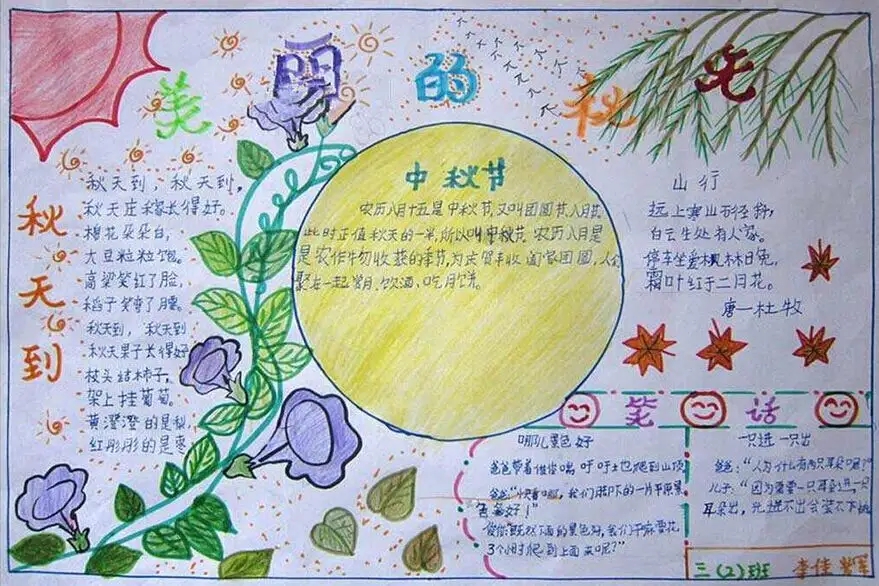 美丽的秋天
秋天到
秋天到,秋天到,
秋天庄稼长得好。
棉花朵朵白,
大豆粒粒饱。
高粱笑红了脸,
稻子笑弯了腰。
秋天到,秋天到
秋天果子长得好
枝头结柿子,
架上挂葡萄。
黄澄澄的是梨,
红彤彤的是枣
中秋节
农历八月十五是中秋节,又叫团圆节,八月
此时正值秋天的一半,所以叫中秋节。农历八月是
是农作物收获的季节,为庆贺丰收 阖家团圆,人们
聚在一起赏月、饮酒、吃月饼。
山行
远上寒山石径斜,
白云生处有人家。
停车坐爱枫林晚,
霜叶红于二月花。
唐一杜牧
笑话
哪儿景色好
爸爸带着俊俊喘吁吁土也爬到山顶
爸爸:"快看哪,我们脚下的一片平原景
色多好!"
俊俊"既然下面的景色好,我们干嘛要花
3个小时爬到上面来呢?"
一只进一只出
爸爸:"人为什么有两只耳朵呢?"
儿子:"因为需要一只耳朵进一只
耳朵出,光进不出会装不下
三(2)班 李佳辉